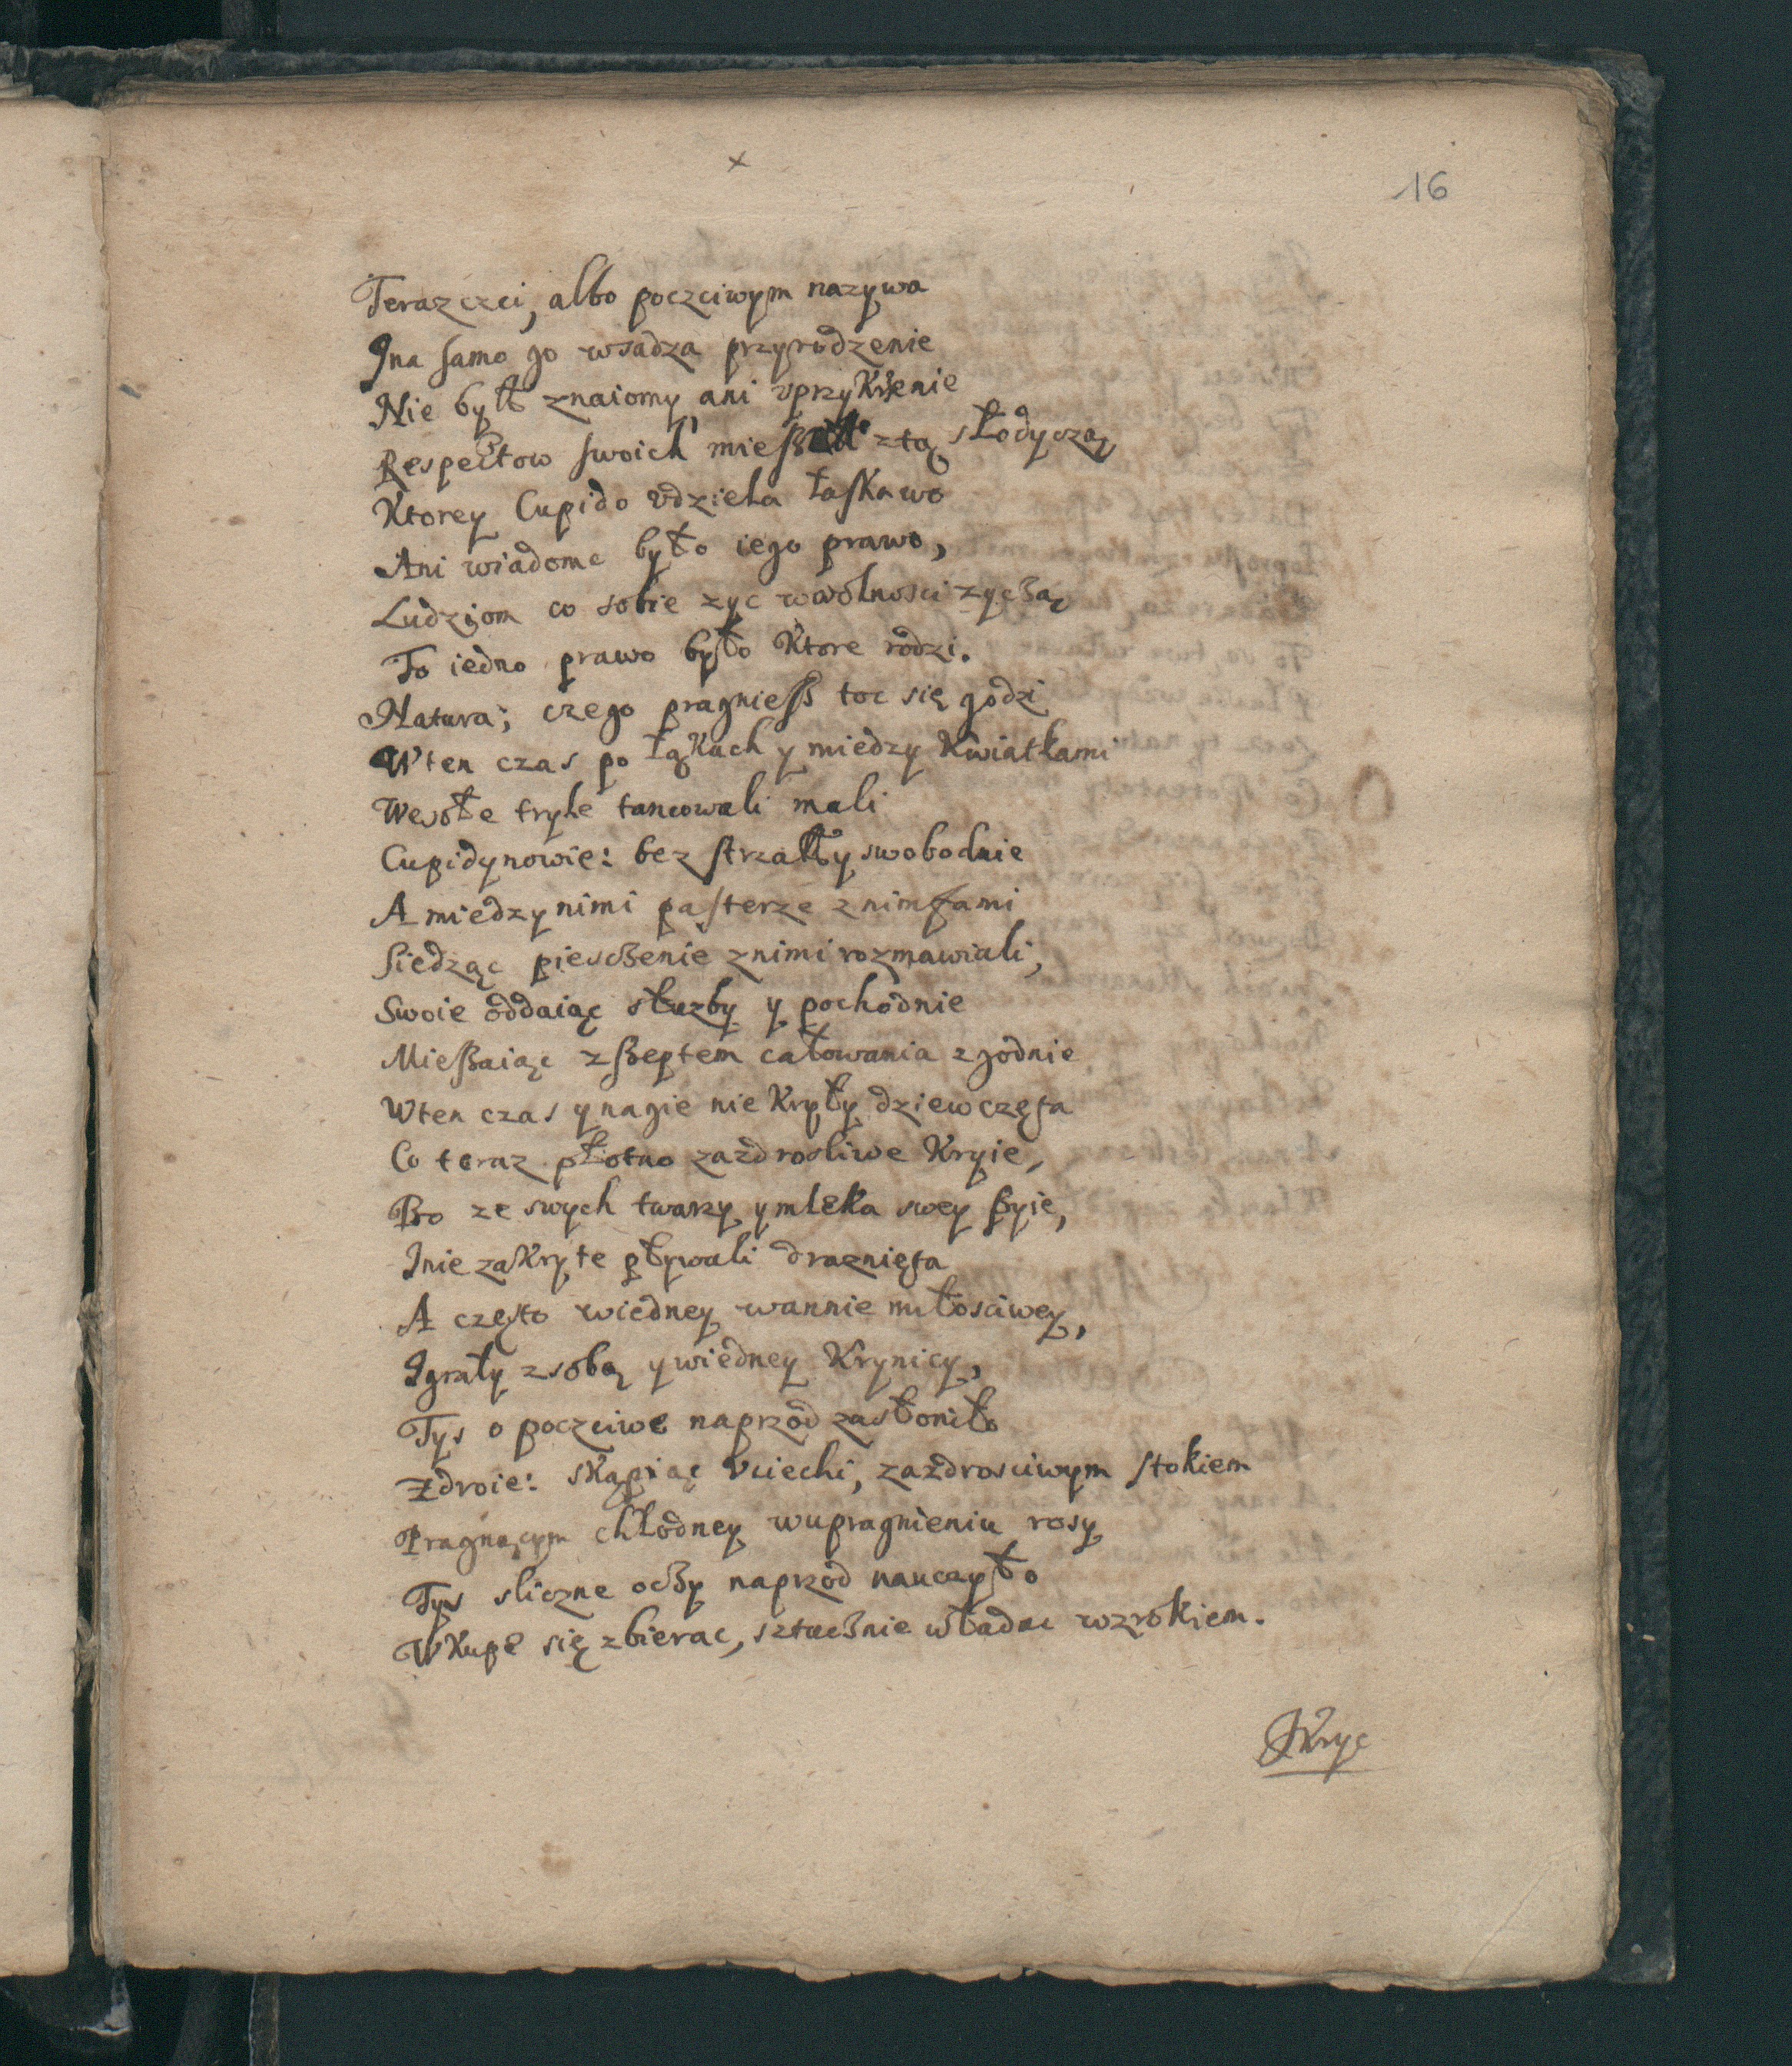 x
16
Teraz czci, albo poczciwym nazywa
Ina samo go wsadza przyrodzenie
Nie był znaiomy, ani vprzykrzenie
Respectow swoich mießał ztą słodyczą
Ktorey Cupido vdziela łaskawo
Ani wiadome było iego prawo,
Ludziom co sobie zyc wwolnosci zyczą
To iedno prawo było Ktore rodzi.
Natura; czego pragnieß toc się godzi
Wten czas po łąkach y miedzy Kwiatkami
Wesołe tryle tancowali mali
Cupidynowie: bez strzały swobodnie
A miedzy nimi pasterze znimfami
Siedząc piesczenie znimi rozmawiali,
Swoie oddaiąc służby y pochodnie
Mießaiąc zßeptem całowania zgodnie
Wten czas y nagie nie Kryły dziewczęta
Co teraz płotno zazdrosliwe Kryie,
Bo ze swych twarzy y mleka swey ßyie,
Inie zakryte pływali draznięta
A często wiedney wannie miłosciwey,
Igrały zsobą y wiedney Krynicy,
Tys o poczciwe naprzod zasłoniło
Zdroie: skąpiąc vciechi, zazdrosciwym stokiem
Pragnącym chłodney wupragnieniu rosy
Tys sliczne oczy naprzod nauczyło
WKupe się zbierac, sztucznie władac wzrokiem.
Kryc